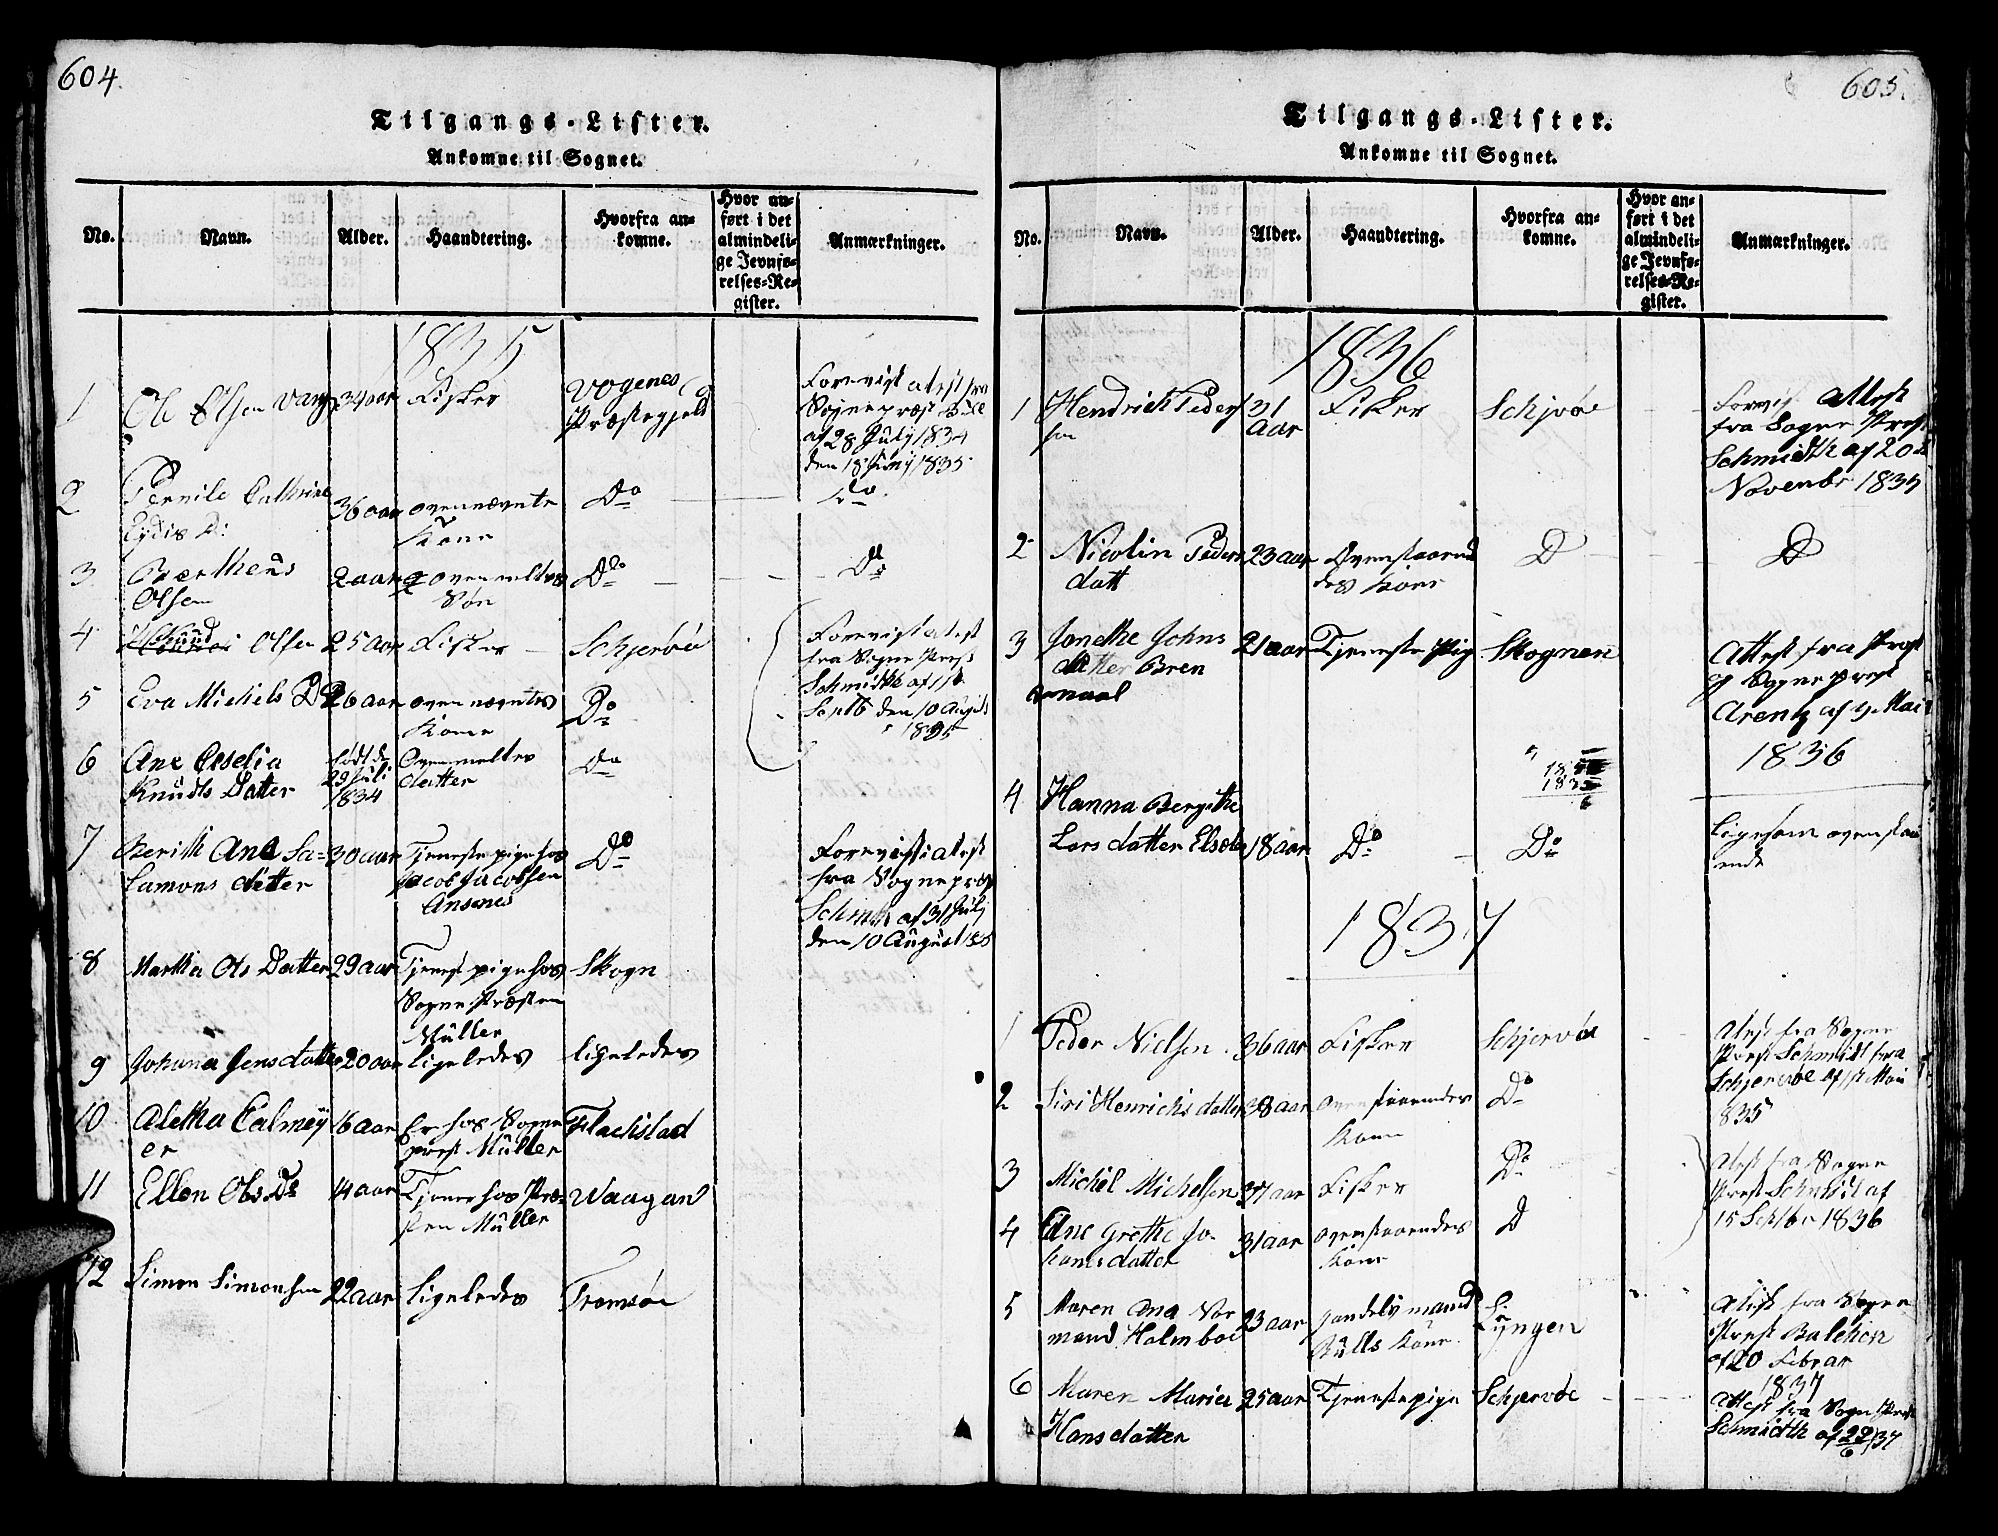 604.
Tilgangs-Lister.
Ankomne til Sognet.
No.
Navn.
Alder.
Haandtering.
Hvorfra an-
komne.
Hvor an-
ført i det
almindeli-
ge Jevnfø-
relses-Re-
gister.
Anmærkninger.
1835
1 Ole Olsen Vang 34 aar Fisker Vogenes
Præstegjeld
Forevist atest fra
Sognepræst
af 28 July 1834
den 18 Juny 1835
2 Pernile Cathrine
D: 36 aar ovennævnte
Kone Do Do
3 Baerthens
Olsen 2 aar ovenmeltes
Søn Do Do
4 Knud Olsen 25 aar Fisker Schjervøe
Forevist atest
fra Sogne Prest
Schmidth af
Septb den 10 August
1835
5 Eva Michels D 26 aar ovennævntes
Kone Do
6 Ane Eselia
Knuds Datter født d
29 Juli
1834 Ovenmeltes
datter Do
7 Berith Ane Sa-
lamons datter 30 aar Tjenestepige hos
Jacob Jacobsen
Ansnes Do
Forevist atest
fra Sogneprest
Schmith af 31 July
den 10 August 1835
8 Martha Ols Datter 29 aar Tjenestpige hos
Sogne Præsten
Müller Skogn
9 Johana Jensdatter 20 aar ligeledes ligeledes
10 Aletha Calmey
er 16 aar Er hos Sogne
prest Müller Flachstad
11 Ellen Ols Dr 14 aar Tjener hos Præ-
sten Müller Waagan
12 Simon Simonsen 22 aar ligeledes Tromsøe
605.
Tilgangs-Lister.
Ankomne til Sognet.
No.
Navn.
Alder.
Haandtering.
Hvorfra an-
komne.
Hvor an-
ført i det
almindeli-
ge Jevnfø-
relses-Re-
gister.
Anmærkninger.
1836
1 Hendrich Peder
sen 31
aar Fisker Schjvøe
Forevist Attest
fra Sogne Prest
Schmidth af 20
Novenbr 1835
2 Nicolin Peders
datt 23 aar Ovenstaaend
des Kone D D
3 Jonethe Johns
datter Bren
maal 21 aar Tjeneste Pig Skognen
Attest fra Prost
og Sogneprest
Arentz af 9 Mai
1836
4 Hanna Bergithe
Lars datter 18 aar Do Do
ligesom ovenstaa
ende
1837
1 Peder Nielsen 36 aar Fisker Schjervøe
Atest fra Sogne
Prest Schmidt fra
Schjervøe af Mai
835
2 Siri Henrichs datter 38 aar ovenstaaendes
Kone Do
3 Michel Michelsen 37 aar Fisker Do
Atest fra Sogne
Prest Schmidt af
15 Septbr 1836
4 Ane Grethe Jo-
hans datter 31 aar ovenstaaendes
Kone D
5 Maren Ana Vor
mand Holmboe 23 aar handelsmand
Kulls Kone Lyngen
Atest fra Sogne
Prest Balchen
af 20 Februar
1837
6 Maren Maria
Hansdatter 25 aar Tjenestepige Schjervøe
Attest fra Sogne Prest
Schmidth af 29/6 37